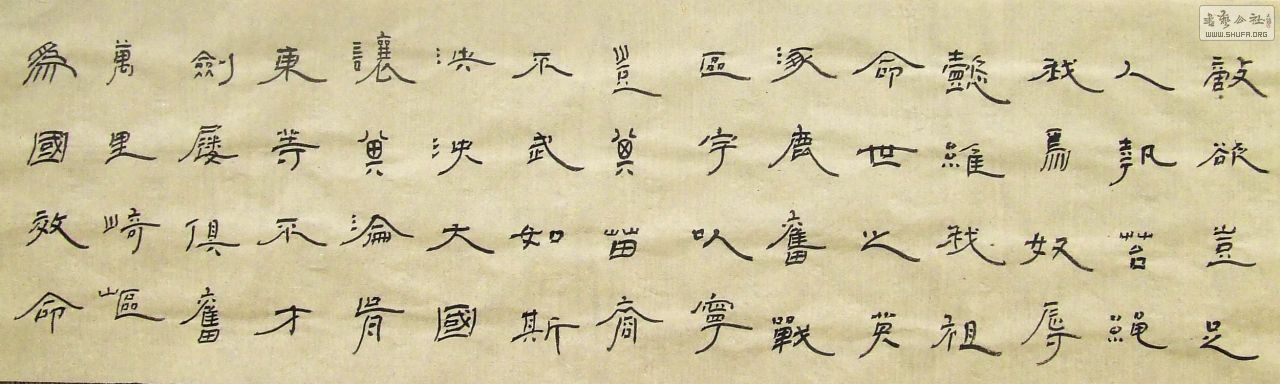 敵欲豈足
人執苔繩
我爲奴辱
懿維我祖
命世之英
涿鹿奮戰
區宇以寧
豈其苗裔
不武如斯
泱泱大國
讓其淪胥
東等不才
劍屨俱奮
萬里崎嶇
爲國效命
書藝公社
WWW.SHUFA.ORG